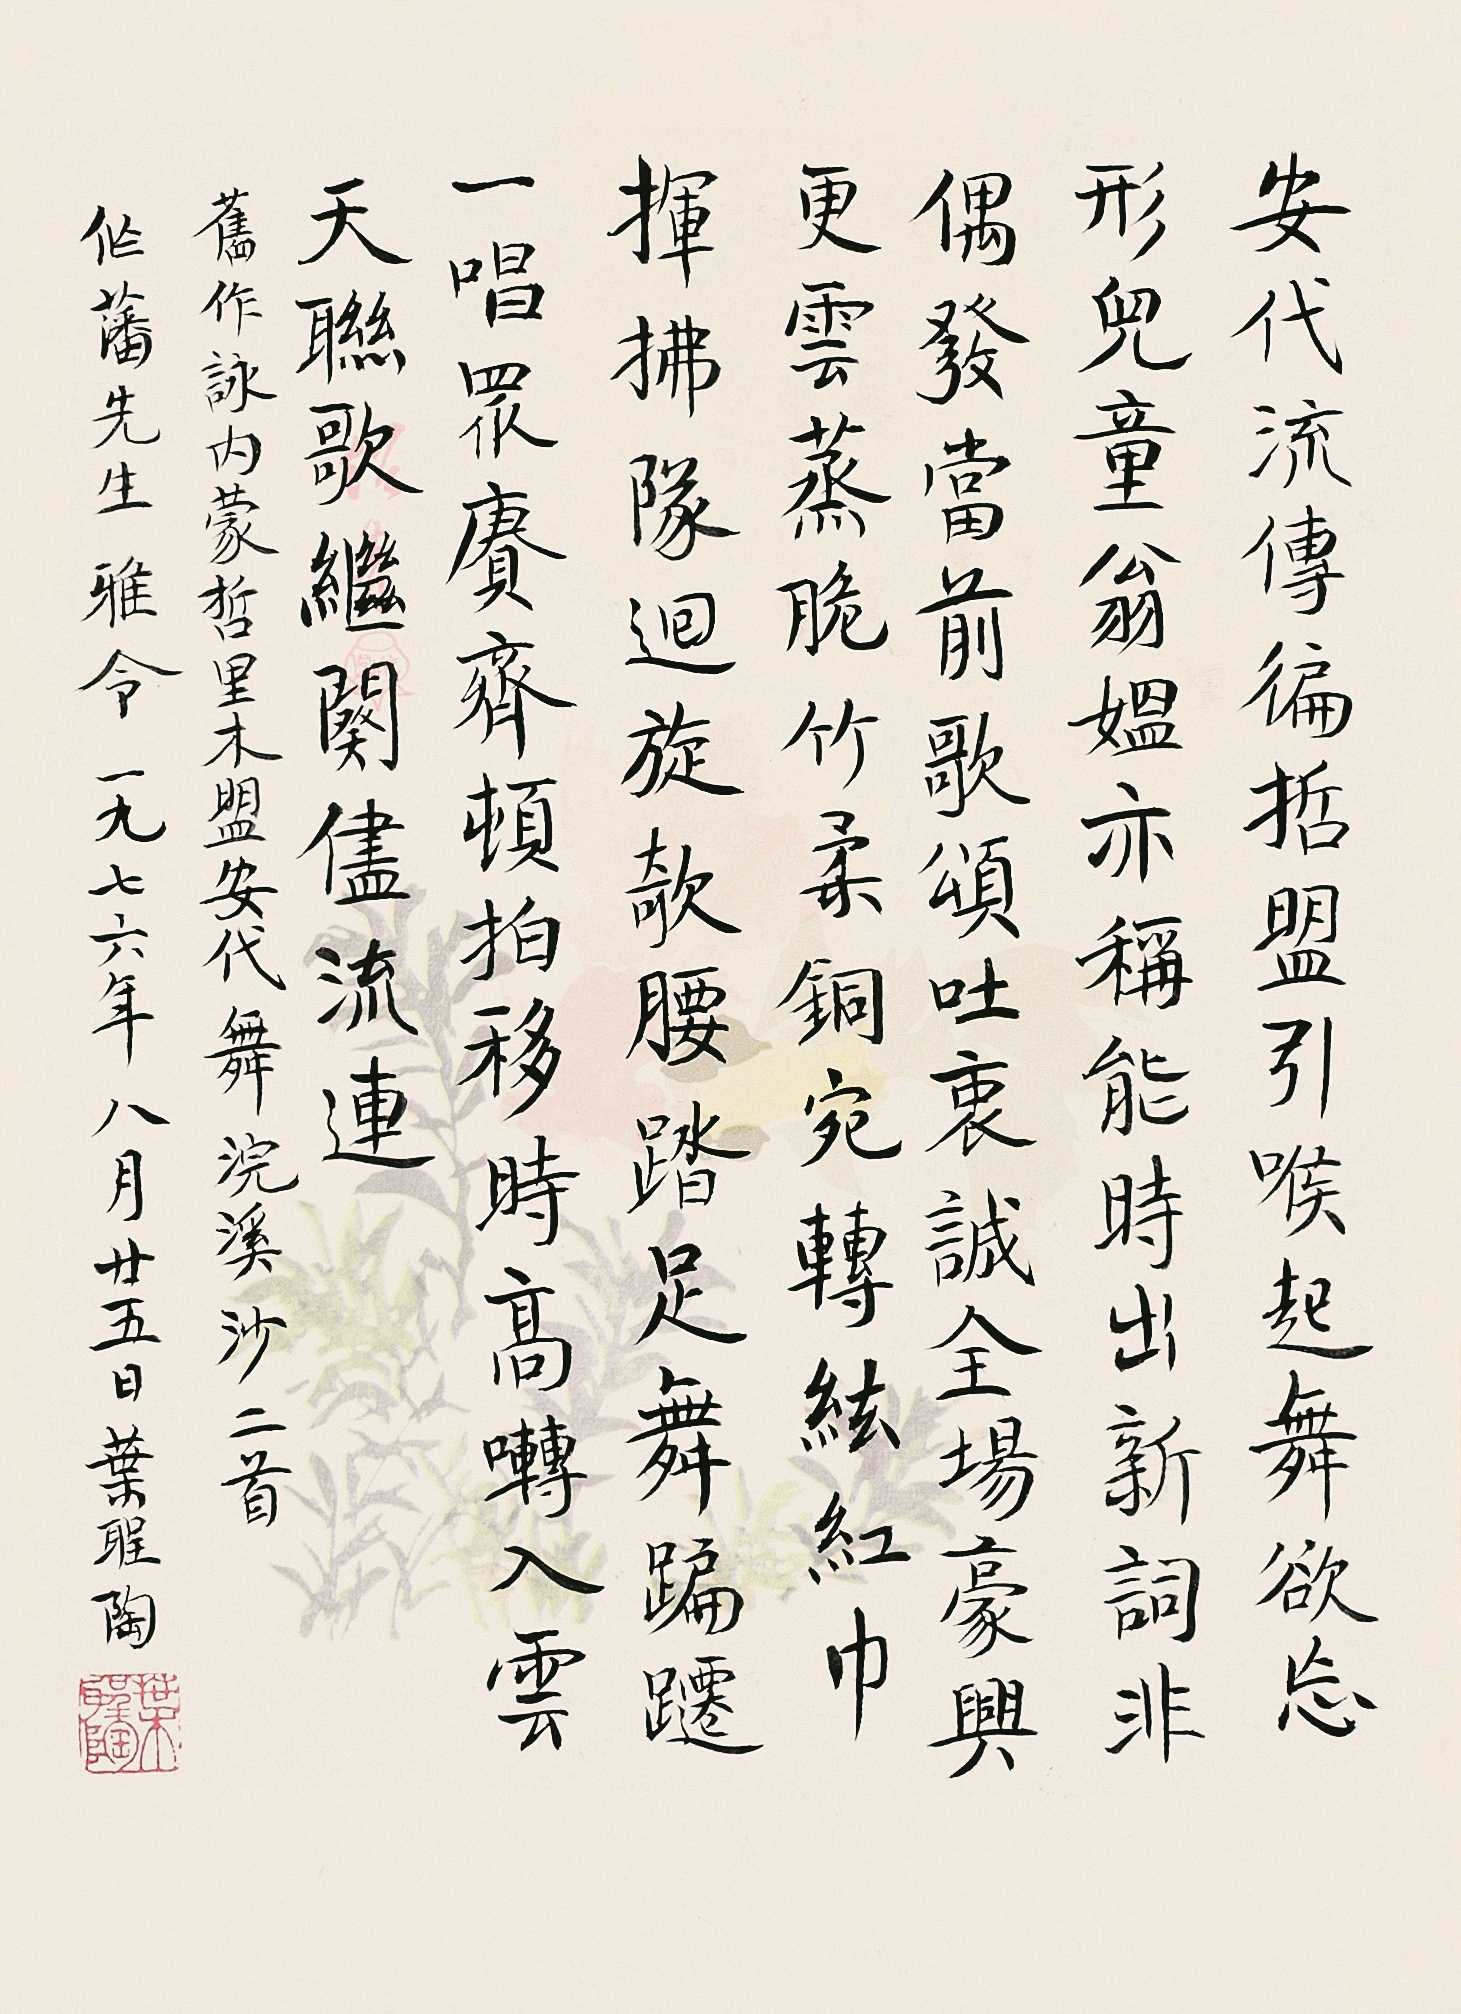 安代流傳徧哲盟引喉起舞欲忘
形兒童翁媼亦稱能時出新詞非
偶發當前歌頌吐衷誠全場豪興
更雲蒸脆竹柔銅宛轉絃紅巾
揮拂隊迴旋欹腰踏足舞蹁躚
一唱眾賡齊頓拍移時高囀入雲
天聯歌繼闋儘流連
舊作詠內蒙哲里木盟安代舞浣溪沙二首
作藩先生雅令一九七六年八月廿五日葉聖陶
葉聖陶